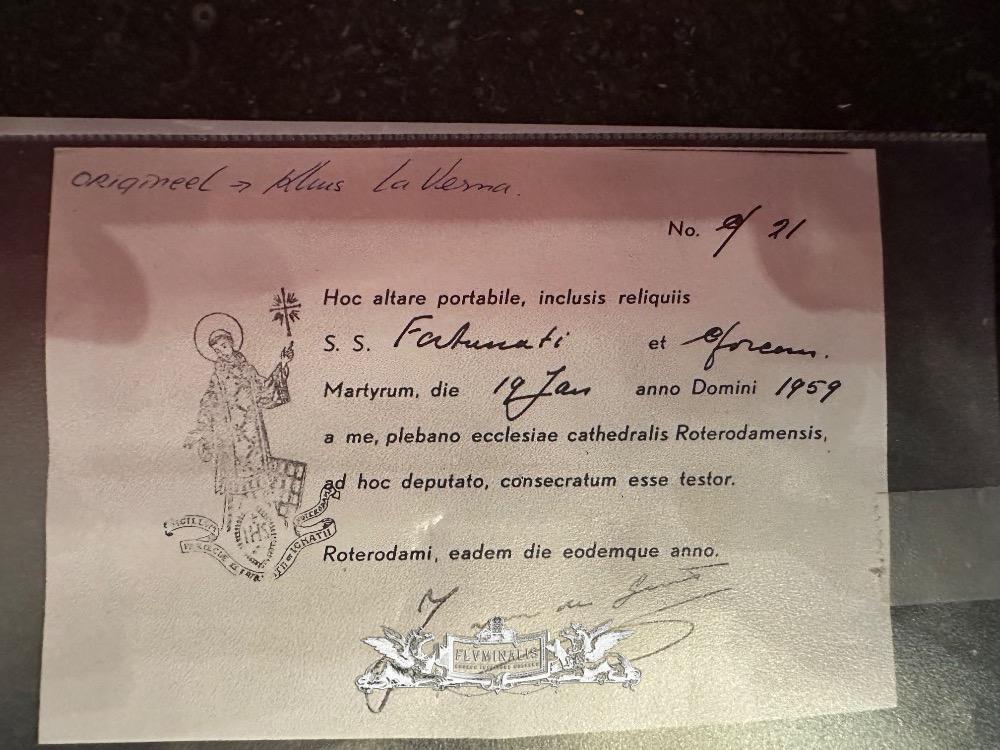 ORIGINEEL → Kluis La Verna.
No. 9/21
Hoc altare portabile, inclusis reliquiis
S. S. Fortunati et
Martyrum, die 19 Jan anno Domini 1959
a me, plebano ecclesiae cathedralis Roterodamensis,
ad hoc deputato, consecratum esse testor.
Roterodami, eadem die eodemque anno.
SIGILLUM
IHS
IGNATII
FLVMINALIS